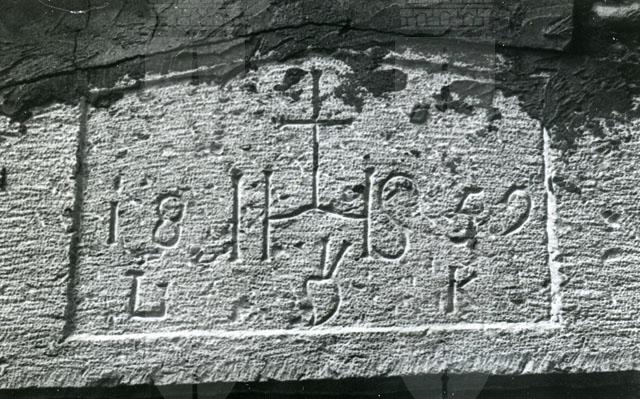 18 IHS 59
L K